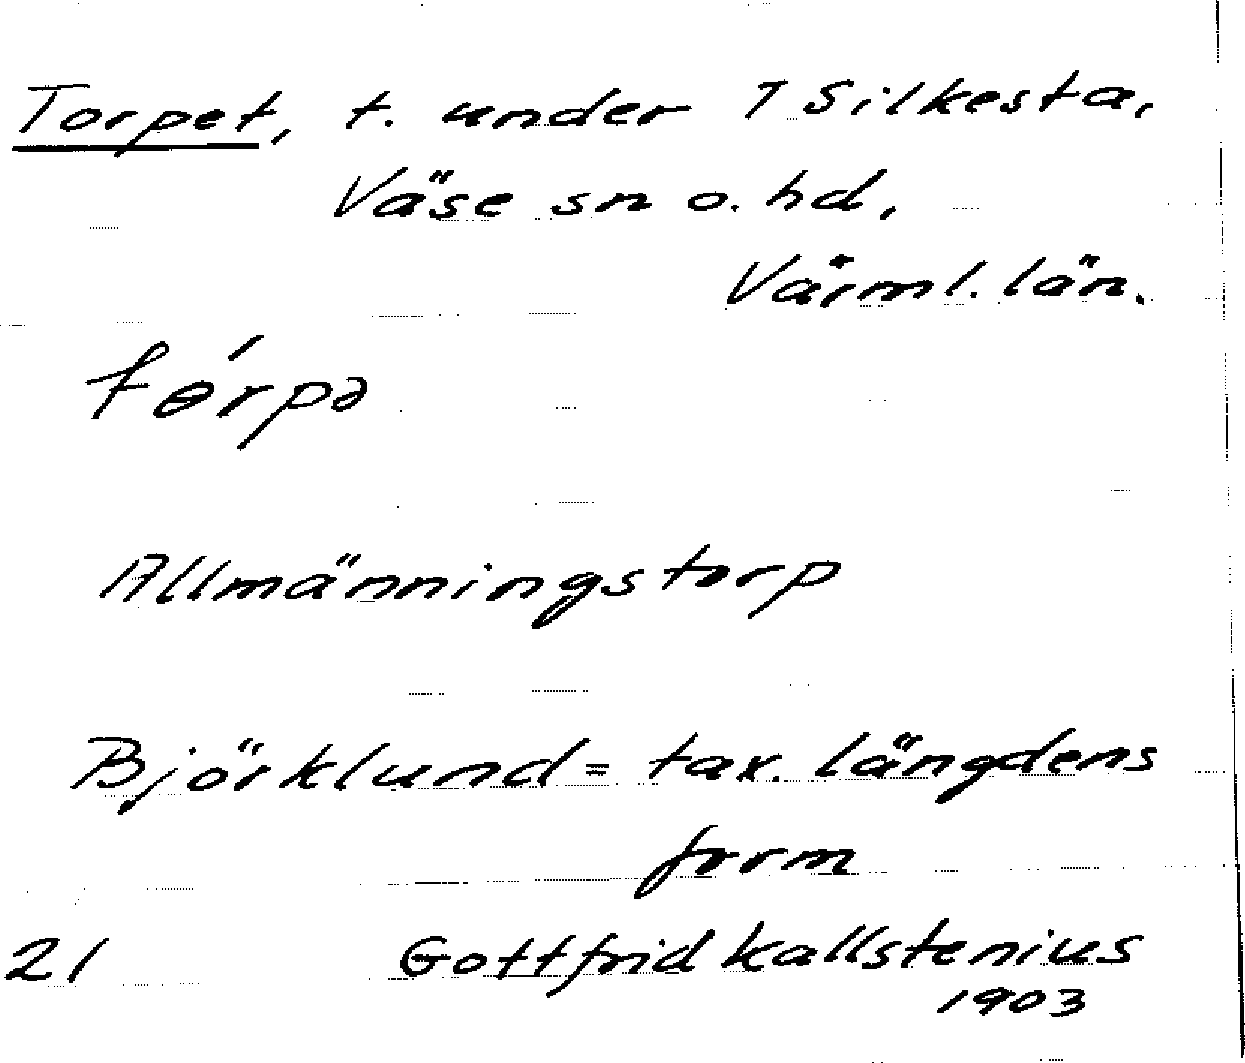 Torpet, t. under 7 Silkesta,
Väse sn o. hd,
Värml. län.
tɵ́rpə
Allmänningstorp
Björklund = tax. längdens
form
21 Gottfrid Kallstenius
1903